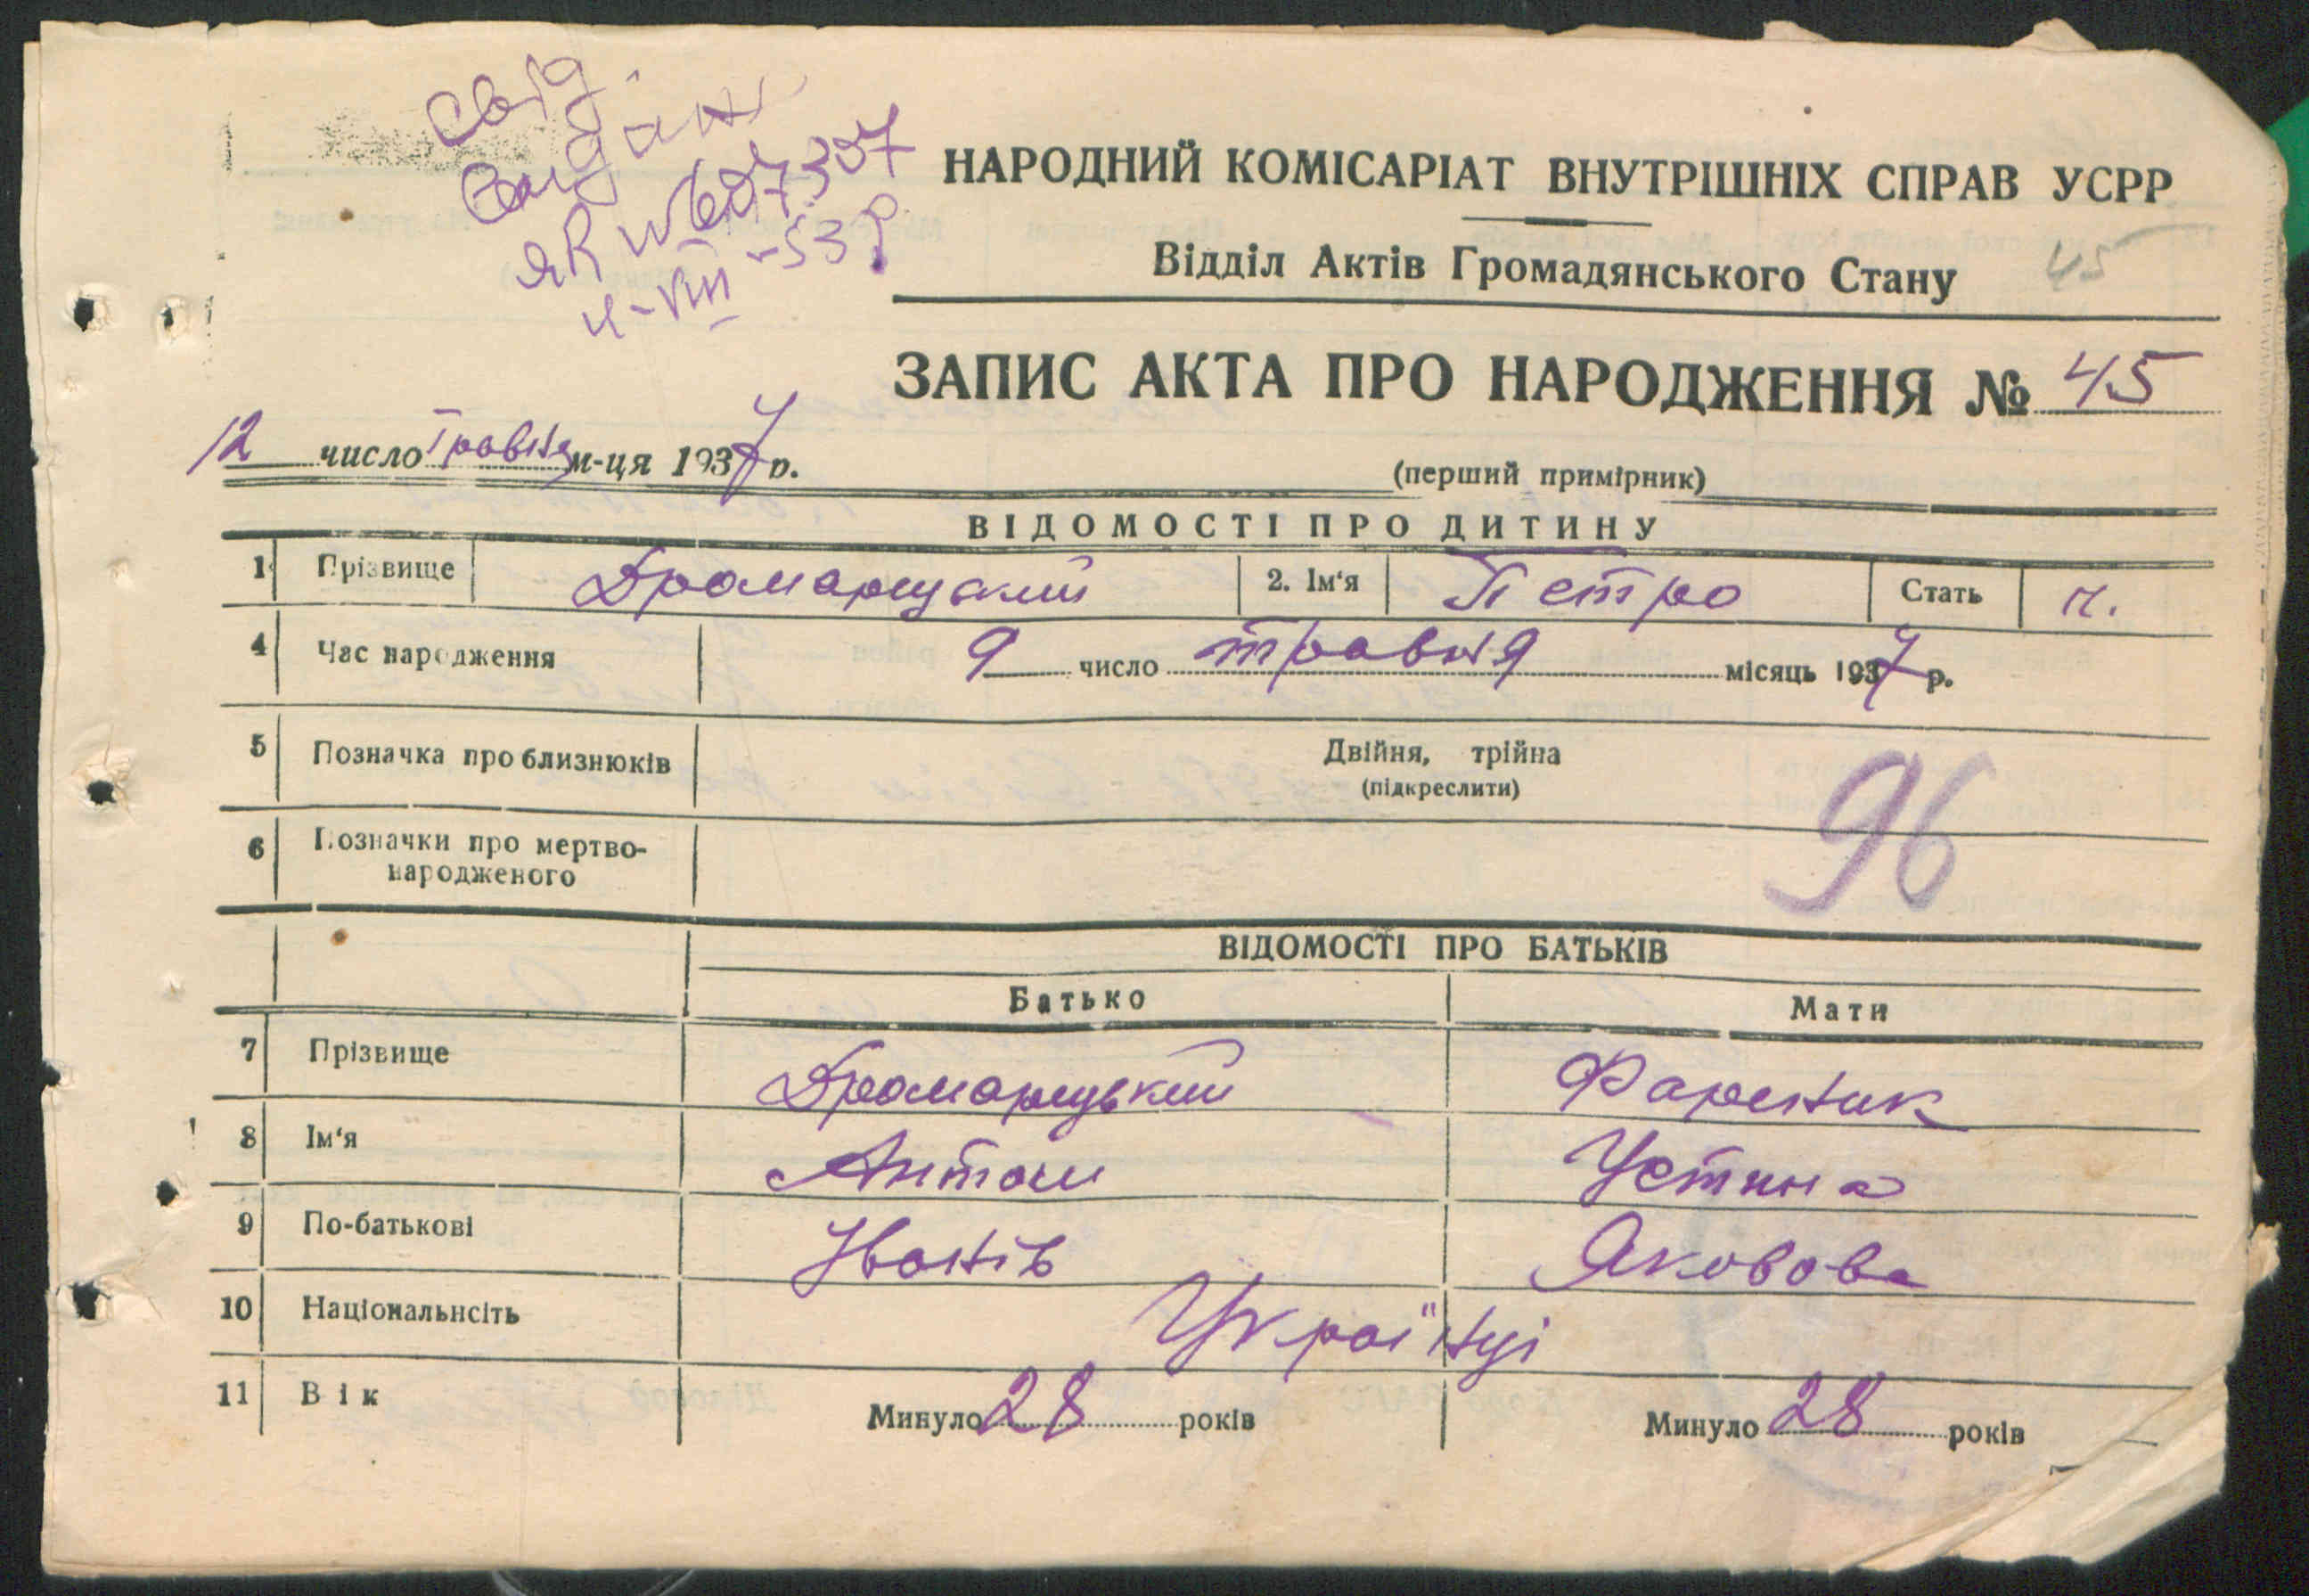 Свід.
видан
ЯК №
4-VIII-53 р
НАРОДНИЙ КОМІСАРІАТ ВНУТРІШНІХ СПРАВ УСРР
Відділ Актів Громадянського Стану
45
ЗАПИС АКТА ПРО НАРОДЖЕННЯ № 45
12 число травня м-ця 1937 р.
(перший примірник)
ВІДОМОСТІ ПРО ДИТИНУ
1 Прізвище Дромарецький 2. Ім‘я Петро Стать ч.
4 Час народження 9 число травня місяць 1937 р.
5 Позначка про близнюків Двійня, трійна
(підкреслити)
96
6 Позначки про мертво-
народженого
ВІДОМОСТІ ПРО БАТЬКІВ
Батько Мати
7 Прізвище Дромарецький
8 Ім‘я Антон Устина
9 По-батькові Іванів Яковова
10 Національнсіть Українці
11 Вік Минуло 28 років Минуло 28 років